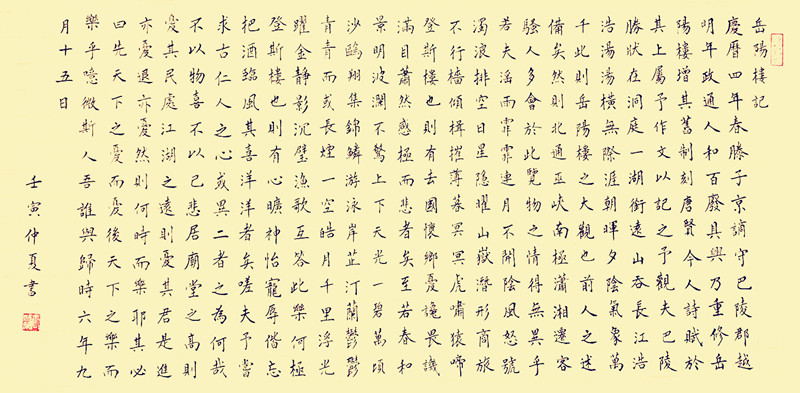 岳陽樓記
慶曆四年春滕子京謫守巴陵郡越
明年政通人和百廢具興乃重修岳
陽樓增其舊制刻唐賢今人詩賦於
其上屬予作文以記之予觀夫巴陵
勝狀在洞庭一湖銜遠山吞長江浩
浩湯湯橫無際涯朝暉夕陰氣象萬
千此則岳陽樓之大觀也前人之述
備矣然則北通巫峽南極瀟湘遷客
騷人多會於此覽物之情得無異乎
若夫淫雨霏霏連月不開陰風怒號
濁浪排空日星隱曜山嶽潛形商旅
不行檣傾楫摧薄暮冥冥虎嘯猿啼
登斯樓也則有去國懷鄉憂讒畏譏
滿目蕭然感極而悲者矣至若春和
景明波瀾不驚上下天光一碧萬頃
沙鷗翔集錦鱗游泳岸芷汀蘭鬱鬱
青青而或長煙一空皓月千里浮光
躍金靜影沉璧漁歌互答此樂何極
登斯樓也則有心曠神怡寵辱偕忘
把酒臨風其喜洋洋者矣嗟夫予嘗
求古仁人之心或異二者之為何哉
不以物喜不以己悲居廟堂之高則
憂其民處江湖之遠則憂其君是進
亦憂退亦憂然則何時而樂耶其必
曰先天下之憂而憂後天下之樂而
樂乎噫微斯人吾誰與歸時六年九
月十五日
壬寅仲夏書